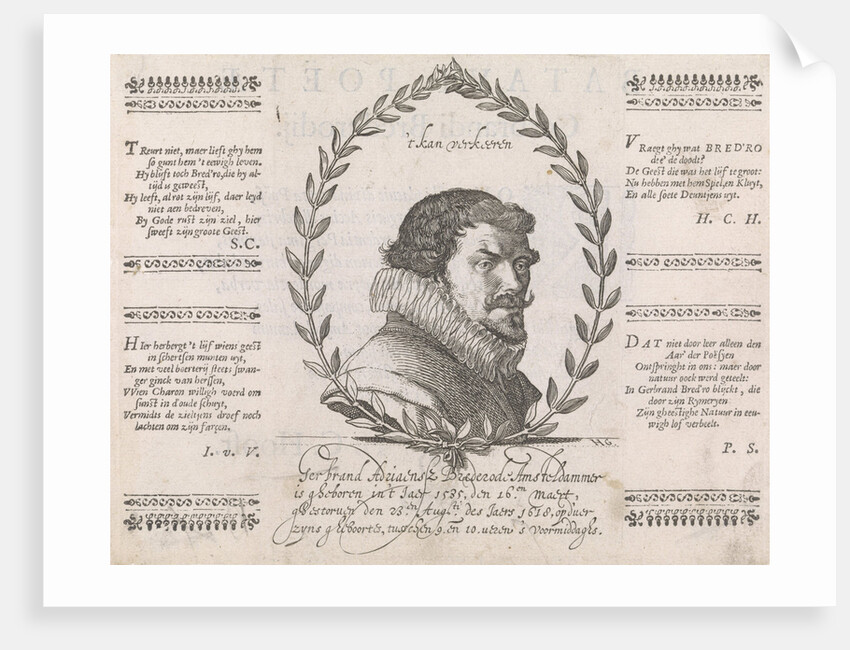 't kan verkeeren
TReurt niet, maer lieft ghy hem
so gunt hem 't eewigh leven.
Hy blijft toch Bred'ro, die hy al-
tijd is geweest,
Hy leeft, al rot zijn lijf, daer leyd
niet aen bedreven,
By Gode rust zijn ziel, hier
sweeft zijn groote Geest.
S. C.
HIer herbergt 't lijf wiens geest
in schertsen munten uyt,
En met veel boerterij steets swan-
ger ginck van herssen,
VVien Charon willigh voerd om
sunst in d'oude schuyt,
Vermids de zieltjens droef noch
lachten om zijn farcen.
I. v. V.
VRaegt ghy wat BRED'RO
dee' de doodt?
De Geest die was het lijf te groot:
Nu hebben met hem Spel, en Kluyt,
En alle soete Deuntjens uyt.
H. C. H.
DAT niet door leer alleen den
Aar' der Poësyen
Ontspringht in ons: maer door
natuur oock werd geteelt:
In Gerbrand Bred'ro blijckt, die
door zijn Rymeryen
Zijn gheestighe Natuur in eeu-
wigh lof verbeelt.
P. S.
HG.
Gerbrand Adriaensz Brederode Amsteldammer
is gheboren in't Jaer 1585. den 16.en Maert,
ghestorven den 23.en Augsti. des Jaers 1618. op d'uer
zyns gheboortes, tusschen 9. en 10. ueren 's voormiddaghs.